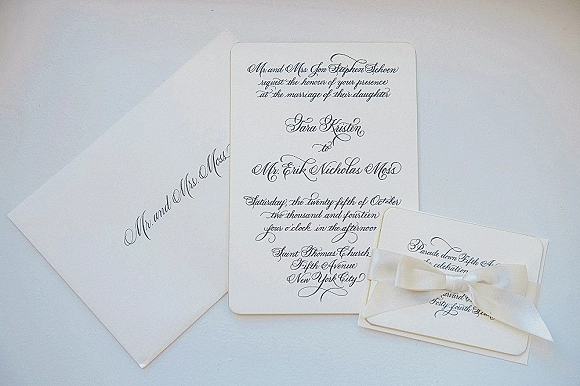 Mr. and Mrs. Moss
Mr. and Mrs. Jon Stephen Schoen
request the honour of your presence
at the marriage of their daughter
Tara Kristen
to
Mr. Erik Nicholas Moss
Saturday, the twenty-fifth of October
two thousand and fourteen
four o'clock in the afternoon
Saint Thomas Church
Fifth Avenue
New York City
Parade down Fifth
celebration
Forty-fourth